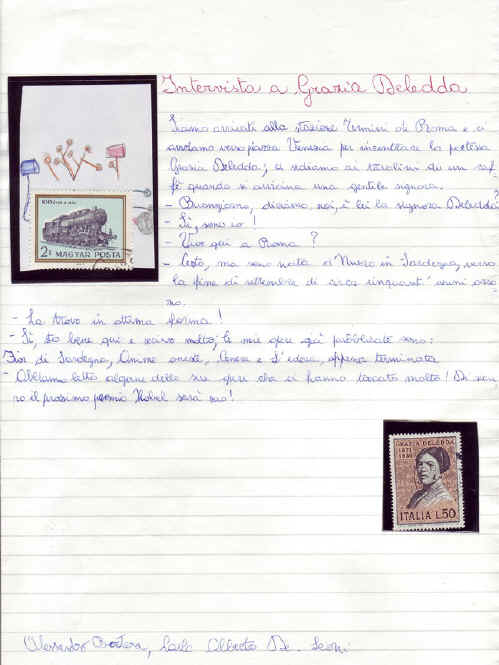 Intervista a Grazia Deledda
Siamo arrivati alla stazione Termini di Roma e ci
avviamo verso piazza Venezia per incontrare la poetessa
Grazia Deledda; ci sediamo ai tavolini di un caf-
fè quando si avvicina una gentile signora.
- Buongiorno, diciamo noi, è lei la signora Deledda?
- Sì, sono io!
- Vive qui a Roma?
- Certo, ma sono nata a Nuoro in Sardegna, verso
la fine di settembre di circa cinquant'anni or so-
no.
- La trovo in ottima forma!
- Sì, sto bene qui e scrivo molto; le mie opere già pubblicate sono:
Fior di Sardegna, Anime oneste, Cenere e L'edera, appena terminata
- Abbiamo letto alcune delle sue opere che ci hanno toccato molto! Di sicu-
ro il prossimo premio Nobel sarà suo!
2 Ft
MAGYAR POSTA
GRAZIA DELEDDA
1871
1936
ITALIA L.50
Carlo Alberto De Leoni